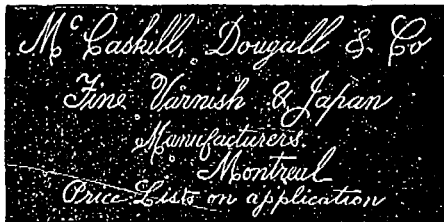 Mc Caskill, Dougall & Co
Fine Varnish & Japan
Manufacturers.
Montreal
Price Lists on application